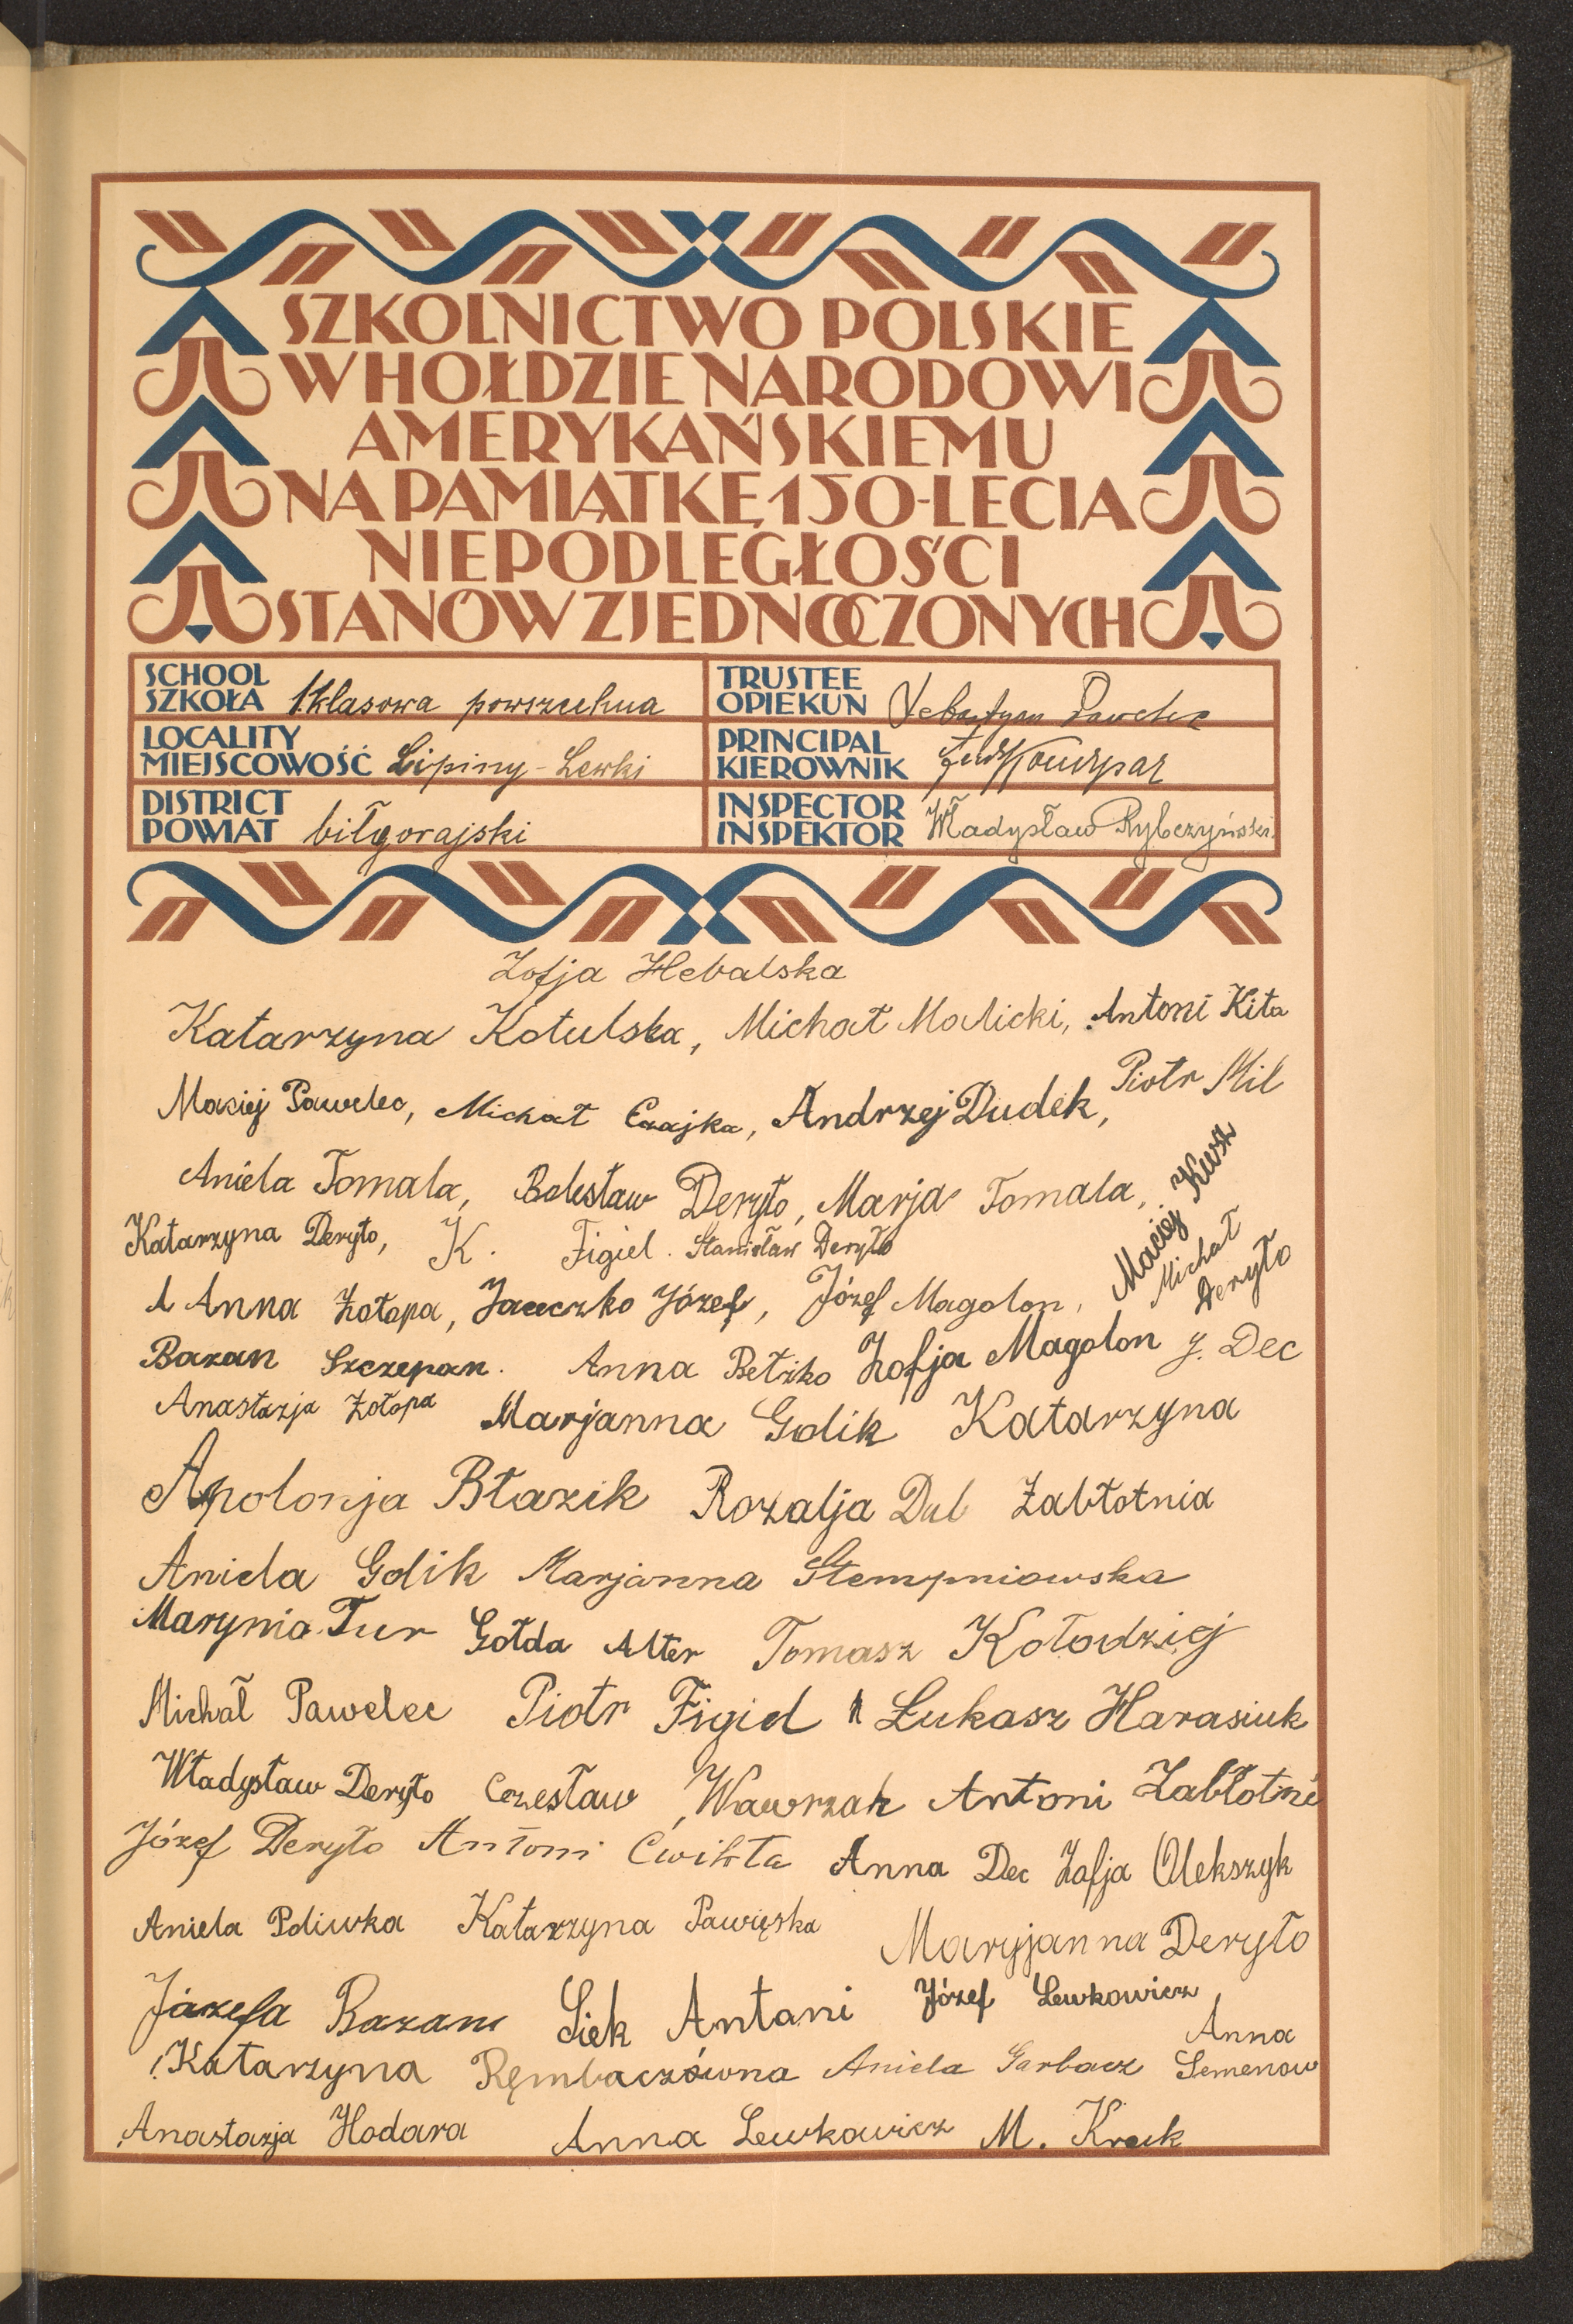 SZKOLNICTWO POLSKIE
W HOŁDZIE NARODOWI
AMERYKAŃSKIEMU
NA PAMIĄTKĘ 150-LECIA
NIEPODLEGŁOŚCI
STANÓW ZJEDNOCZONYCH
SCHOOL
SZKOŁA 1 klasowa powszechna
TRUSTEE
OPIEKUN Sebastyan Pawelec
LOCALITY
MIEJSCOWOŚĆ Lipiny-Lewki
PRINCIPAL
KIEROWNIK
DISTRICT
POWIAT biłgorajski
INSPECTOR
INSPEKTOR Władysław Rybczyński
Zofja Hebalska
Katarzyna Kotulska, Michał Malicki, Antoni Kita
Maciej Pawelec, Michał Czajka, Andrzej Dudek, Piotr Mil
Aniela Tomala, Bolesław Deryło, Marja Tomala, Maciej Kusz
Katarzyna Deryło, K. Figiel. Stanisław Deryło
Michał Deryło
A Anna Żołopa, Janczko Józef, Józef Magolon,
Bazan Szczepan. Anna Bełzko Zofja Magolon J. Dec
Anastazja Żołopa Marjanna Golik Katarzyna
Apolonja Błazik Rozalja Dul Zabłotnia
Aniela Golik Marjanna Stempniowska
Marynia Tur Gołda Alter Tomasz Kołodziej
Michał Pawelec Piotr Figiel Łukasz Harasiuk
Władysław Deryło Czesław Wawrzak Antoni Zabłotni
Józef Deryło Antoni Ćwikła Anna Dec Zofja Olekszyk
Aniela Poliwka Katarzyna Pawięska Maryjanna Deryło
Józefa Bazan Siek Antani Józef Lewkowicz
Katarzyna Ręmbaczówna Aniela Garbacz Anna Semenow
Anastazja Hodara Anna Lewkowicz M. Kruk